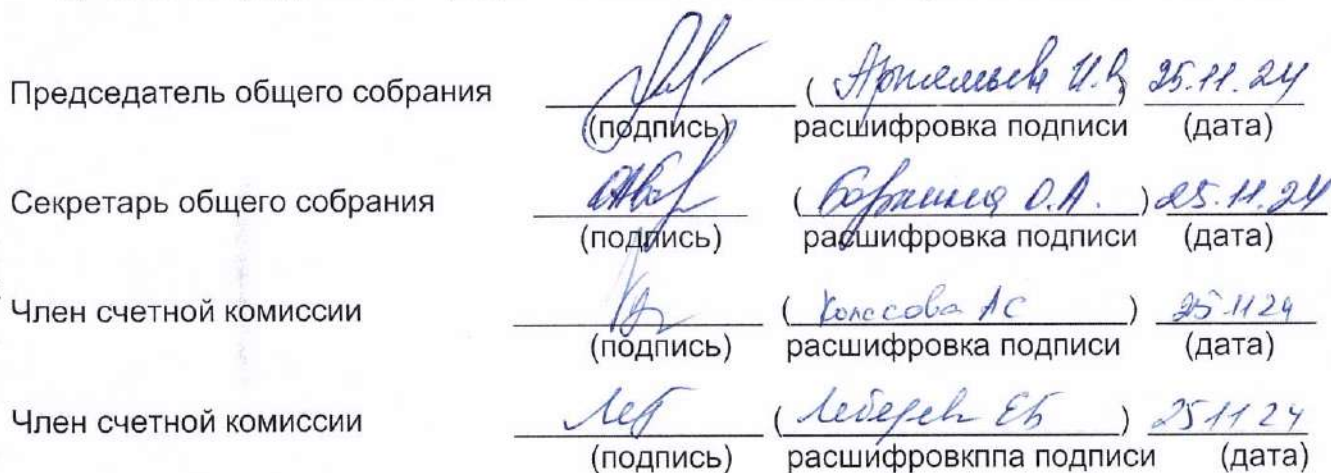 Председатель общего собрания ( Артемьева И.В. ) 25.11.24
(подпись) расшифровка подписи (дата)
Секретарь общего собрания ( О.А. ) 25.11.24
(подпись) расшифровка подписи (дата)
Член счетной комиссии ( Колесова АС ) 25 11 24
(подпись) расшифровка подписи (дата)
Член счетной комиссии ( Лебедев ЕБ ) 25 11 24
(подпись) расшифровкппа подписи (дата)